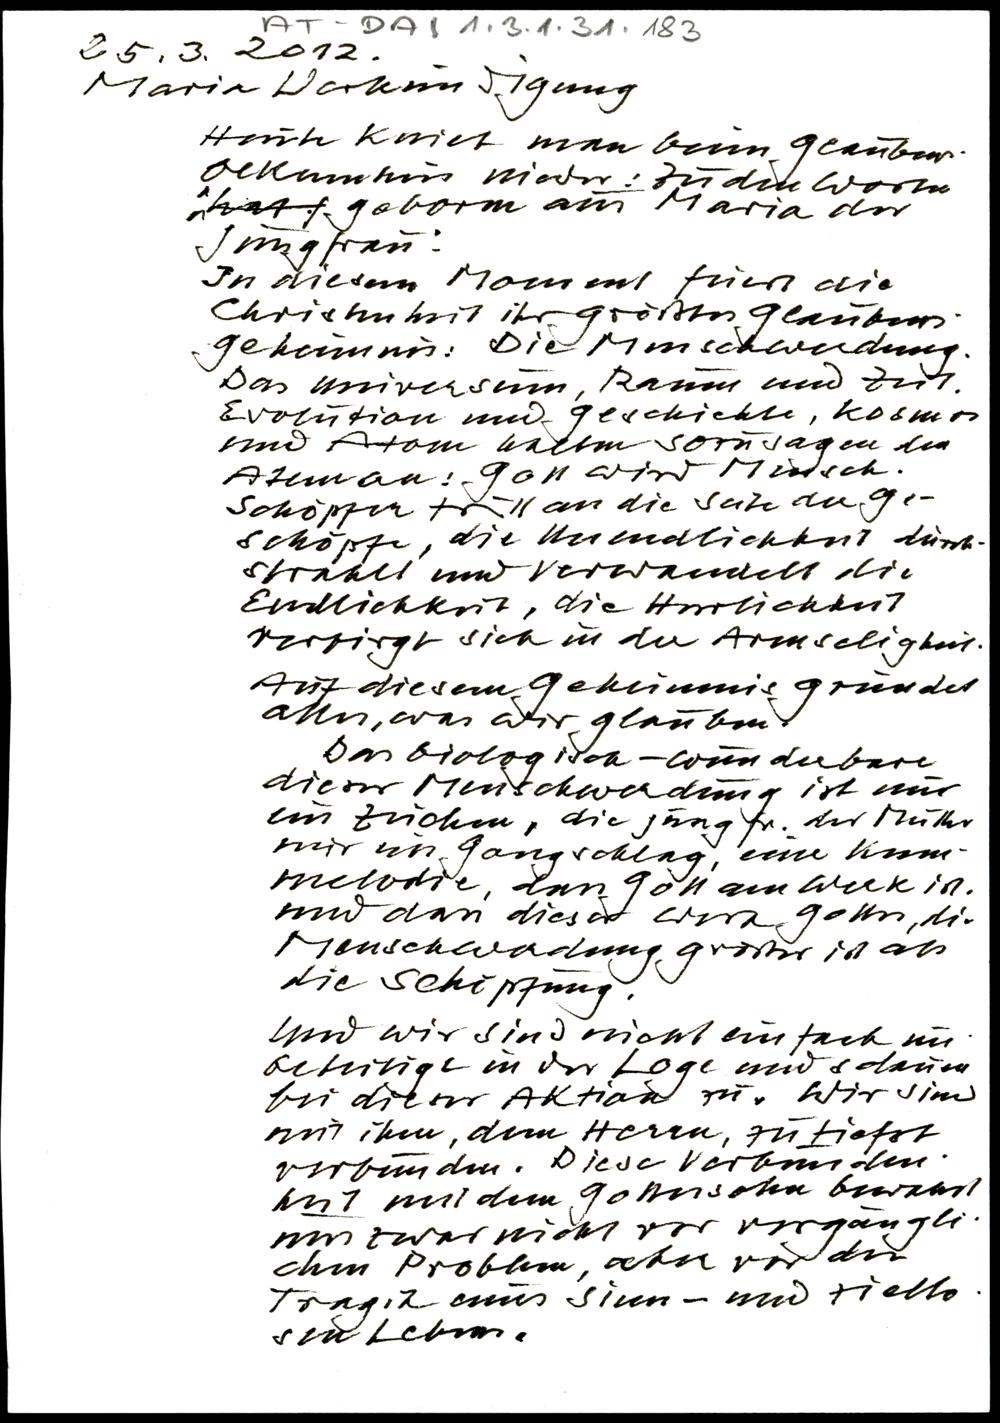 AT-DAI 1.3.1.31.183
25.3.2012.
Maria Verkündigung
Heute kniet man beim Glaubens-
bekenntnis nieder: zu den Worten
geboren aus Maria der
Jungfrau:
In diesem Moment feiert die
Christenheit ihr größtes Glaubens-
geheimnis: Die Menschwerdung.
Das Universum, Raum und Zeit.
Evolution und Geschichte, Kosmos
und Atom halten sozusagen den
Atem an: Gott wird Mensch.
Schöpfer tritt an die Seite der Ge-
schöpfe, die Unendlichkeit durch-
strahlt und verwandelt die
Endlichkeit, die Herrlichkeit
verbirgt sich in der Armseligkeit.
Auf diesem Geheimnis gründet
alles, was wir glauben.
Das biologisch-wunderbare
dieser Menschwerdung ist nur
ein Zeichen, die Jungfr. der Mutter
nur ein Gongschlag, eine Kenn-
melodie, dass Gott am Werk ist.
und dass dieses Werk Gottes, die
Menschwerdung größer ist als
die Schöpfung.
Und wir sind nicht einfach un-
beteiligt in der Loge und schauen
bei dieser Aktion zu. Wir sind
mit ihm, dem Herrn, zutiefst
verbunden. Diese Verbunden-
heit mit dem Gottessohn bewahrt
uns zwar nicht vor vergängli-
chen Problemen, aber vor der
Tragik eines Sinn- und ziello-
sen Lebens.